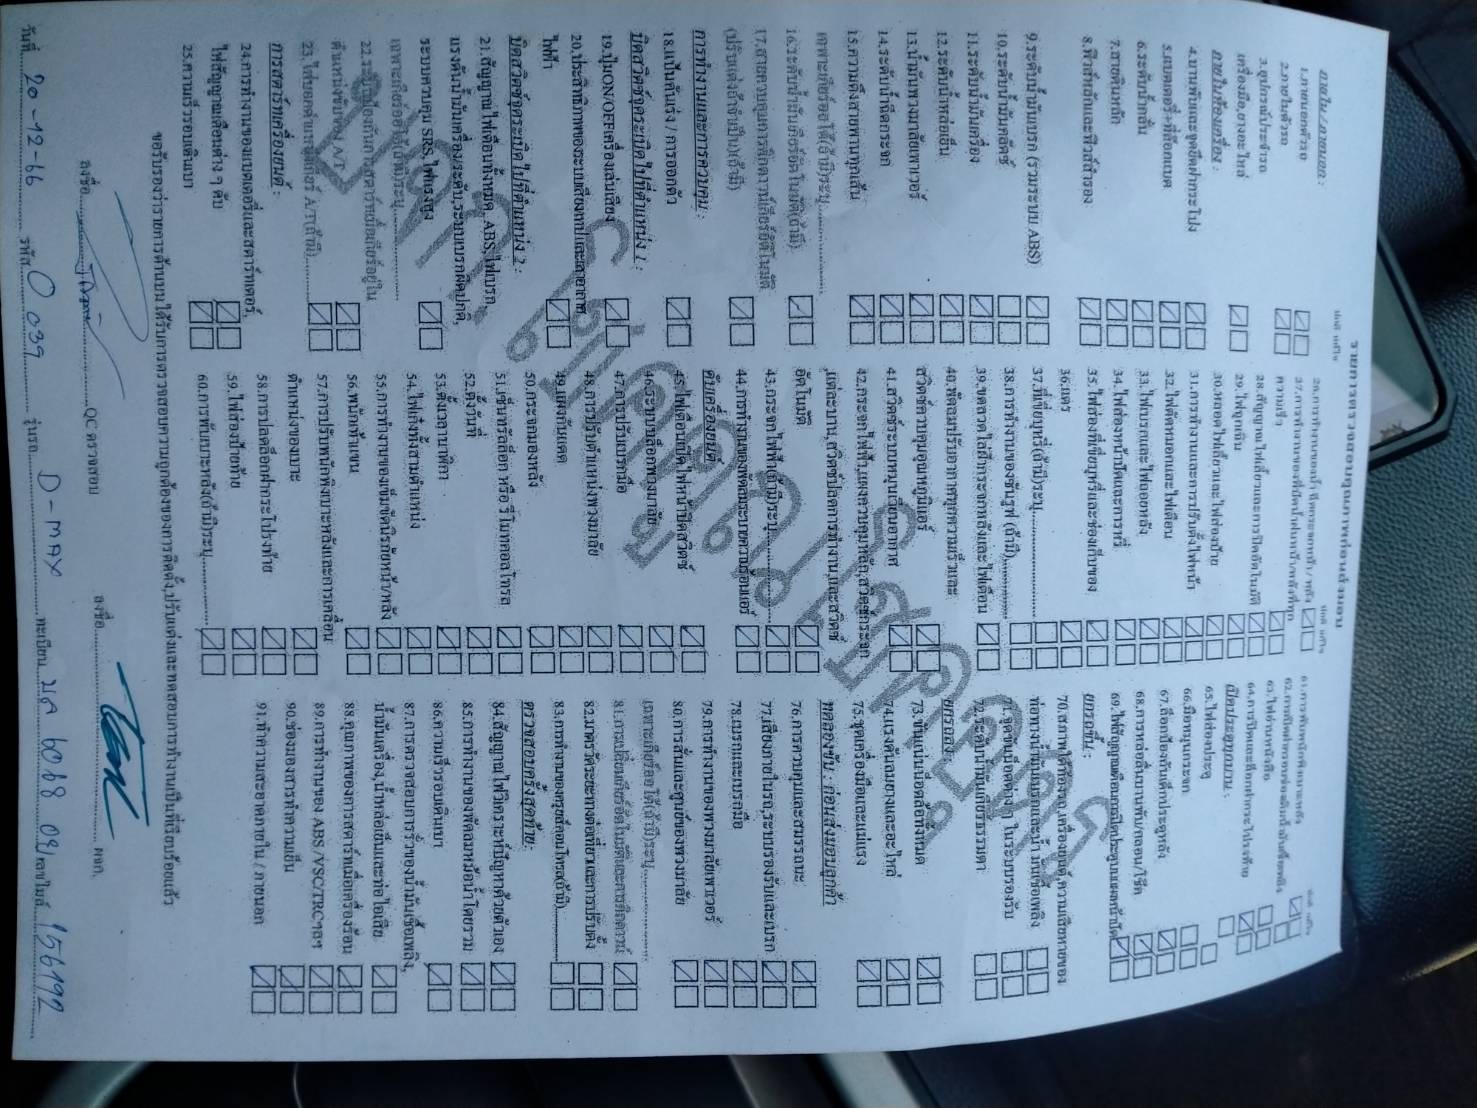 รายการตรวจสอบคุณภาพก่อนส่งมอบ
ภายใน / ภายนอก :
1.ภายนอกตัวรถ
2.ภายในตัวรถ
3.อุปกรณ์ประจำรถ
เครื่องมือ,ยางอะไหล่
ภายในห้องเครื่อง :
4.บานพับและจุดยึดฝากระโปง
5.แบตเตอรี่+ที่ล็อกแบต
6.ระดับน้ำกลั่น
7.สายดินหลัก
8.ฟิวส์หลักและฟิวส์สำรอง
9.ระดับน้ำมันเบรก (รวมระบบ ABS)
10.ระดับน้ำมันคลัตช์
11.ระดับน้ำมันเครื่อง
12.ระดับน้ำหล่อเย็น
13.น้ำมันพวงมาลัยเพาเวอร์
14.ระดับน้ำฉีดกระจก
15.ความตึงสายพานทุกเส้น
เฉพาะเกียร์ออโต้(ถ้ามี)ระบุ
16.ระดับน้ำมันเกียร์อัตโนมัติ(ถ้ามี)
17.สายควบคุมการคิกดาวน์เกียร์อัตโนมัติ
(ปรับแต่งถ้าจำเป็น)(ถ้ามี)
การทำงานและการควบคุม :
18.แป้นคันเร่ง / การออกตัว
บิดสวิตช์จุดระเบิดไปที่ตำแหน่ง 1 :
19.ปุ่มON/OFFเครื่องเล่นเสียง
20.ประสิทธิภาพของระบบเสียงเทปและเสาอากาศ
ไฟฟ้า
บิดสวิตช์จุดระเบิดไปที่ตำแหน่ง 2 :
21.สัญญาณไฟเตือนทั้งหมด ABS,ไฟเบรก,
แรงดันน้ำมันเครื่อง/ระดับ,ระบบเบรกผิดปกติ,
ระบบควบคุม SRS,ไฟแรงสูง
เฉพาะเกียร์ออโต้(ถ้ามี)ระบุ
22.ระบบป้องกันการสตาร์ทเมื่อเกียร์อยู่ใน
ตำแหน่งขับของ A/T
23.ไฟบอกตำแหน่งเกียร์ A/T(ถ้ามี)
การสตาร์ทเครื่องยนต์ :
24.การทำงานของแบตเตอรี่และสตาร์ทเตอร์,
ไฟสัญญาณเตือนต่าง ๆ ดับ
25.ความเร็วรอบเดินเบา
27.การทำงานของที่ปัดน้ำฝนหน้า/หลังที่ทุก
ความเร็ว
28.สัญญาณไฟเลี้ยวและการปิดอัตโนมัติ
29.ไฟฉุกเฉิน
30.หลอดไฟเลี้ยวและไฟส่องป้าย
31.การทำงานและการปรับตั้งไฟหน้า
32.ไฟตัดหมอกและไฟเตือน
33.ไฟเบรกและไฟถอยหลัง
34.ไฟส่องหน้าปัทม์และการหรี่
35.ไฟส่องที่เขี่ยบุหรี่และช่องเก็บของ
36.แตร
37.ที่เขี่ยบุหรี่(ถ้ามี)ระบุ
38.การทำงานของซันรูฟ (ถ้ามี)
39.ขดลวดไล่ฝ้ากระจกหลังและไฟเตือน
40.พัดลมปรับอากาศทุกความเร็วและ
สวิตช์ควบคุมอุณหภูมิแอร์
41.สวิตช์ระบบหมุนเวียนอากาศ
42.กระจกไฟฟ้า,แผงควบคุมหลัก,สวิตช์กระจก
แต่ละบาน,สวิตช์ปลดการทำงานและสวิตช์
อัตโนมัติ
43.กระจกไฟฟ้า(ถ้ามี)ระบุ
44.การทำงานของพัดลมระบายความร้อนแอร์
ดับเครื่องยนต์
45.ไฟเตือนเปิดไฟหน้าปิดสวิตช์
46.ระบบล็อกพวงมาลัย
47.การปรับเบรกมือ
48.การปรับตำแหน่งพวงมาลัย
49.แผงกันแดด
50.กระจกมองหลัง
51.เซ็นทรัลล็อก หรือ รีโมทคอลโทรล
52.ตั้งวันที่
53.ตั้งเวลานาฬิกา
54.ไฟเก๋งทั้งสามตำแหน่ง
55.การทำงานของเข็มขัดนิรภัยหน้า/หลัง
56.พนักเท้าแขน
57.การปรับพนักพิงเบาะหลังและการเคลื่อน
ตำแหน่งของเบาะ
58.การปลดล็อกฝากระโปรงท้าย
59.ไฟส่องป้ายท้าย
60.การพับเบาะหลัง(ถ้ามี)ระบุ
64.การปิดและล็อกฝากระโปรงท้าย
เปิดประตูทุกบาน :
65.ไฟส่องประตู
66.มือหมุนกระจก
67.ล็อกป้องกันเด็กประตูหลัง
68.การหล่อลื่นบานพับ/กลอน/โช๊ค
69.ไฟสัญญาณเตือนกรณีปิดประตูบนแผงหน้าปัด
ยกรถขึ้น :
70.สภาพใต้ท้องรถ,เครื่องยนต์,ความเสียหายของ
ท่อทางน้ำมันเบรกและน้ำมันเชื้อเพลิง
71.จุดขันน็อตต่างๆ ในระบบรองรับ
72.ระดับน้ำมันเกียร์ธรรมดา
ยกรถลง :
73.ขันแน่นน๊อตล้อทั้งหมด
74.แรงดันลมยางและอะไหล่
75.ชุดเครื่องมือและแม่แรง
ทดลองขับ : ก่อนส่งมอบลูกค้า
76.การควบคุมและสมรรถนะ
77.เสียงภายในรถ,ระบบรองรับและเบรก
78.เบรกและเบรกมือ
79.การทำงานของพวงมาลัยเพาเวอร์
80.การสั่นและศูนย์ของพวงมาลัย
เฉพาะเกียร์ออโต้(ถ้ามี)ระบุ
81.การเปลี่ยนเกียร์อัตโนมัติและการคิกดาวน์
82.มาตรวัดระยะทางต่อเที่ยวและการปรับตั้ง
83.การทำงานของครุยส์คอนโทรล(ถ้ามี)
ตรวจสอบครั้งสุดท้าย:
84.สัญญาณไฟวิเคราะห์ปัญหาด้วยตัวเอง
85.การทำงานของพัดลมหม้อน้ำโดยรวม
86.ความเร็วรอบเดินเบา
87.การตรวจสอบการรั่วของน้ำมันเชื้อเพลิง,
น้ำมันเครื่อง,น้ำหล่อเย็นและท่อไอเสีย
88.คุณภาพของการสตาร์ทเมื่อเครื่องร้อน
89.การทำงานของ ABS /VSC/TRCฯลฯ
90.ช่องมองสารทำความเย็น
91.ทำความสะอาดภายใน / ภายนอก
ขอรับรองว่ารายการด้านบนได้รับการตรวจสอบความถูกต้องของการติดตั้ง,ปรับแต่งและทดสอบการทำงานเป็นที่เรียบร้อยแล้ว
ลงชื่อ QC ตรวจสอบ ลงชื่อ ผจก.
วันที่ 20-12-66 รหัส 0039 รุ่นรถ D-max ทะเบียน 6088 เลขไมล์ 156192